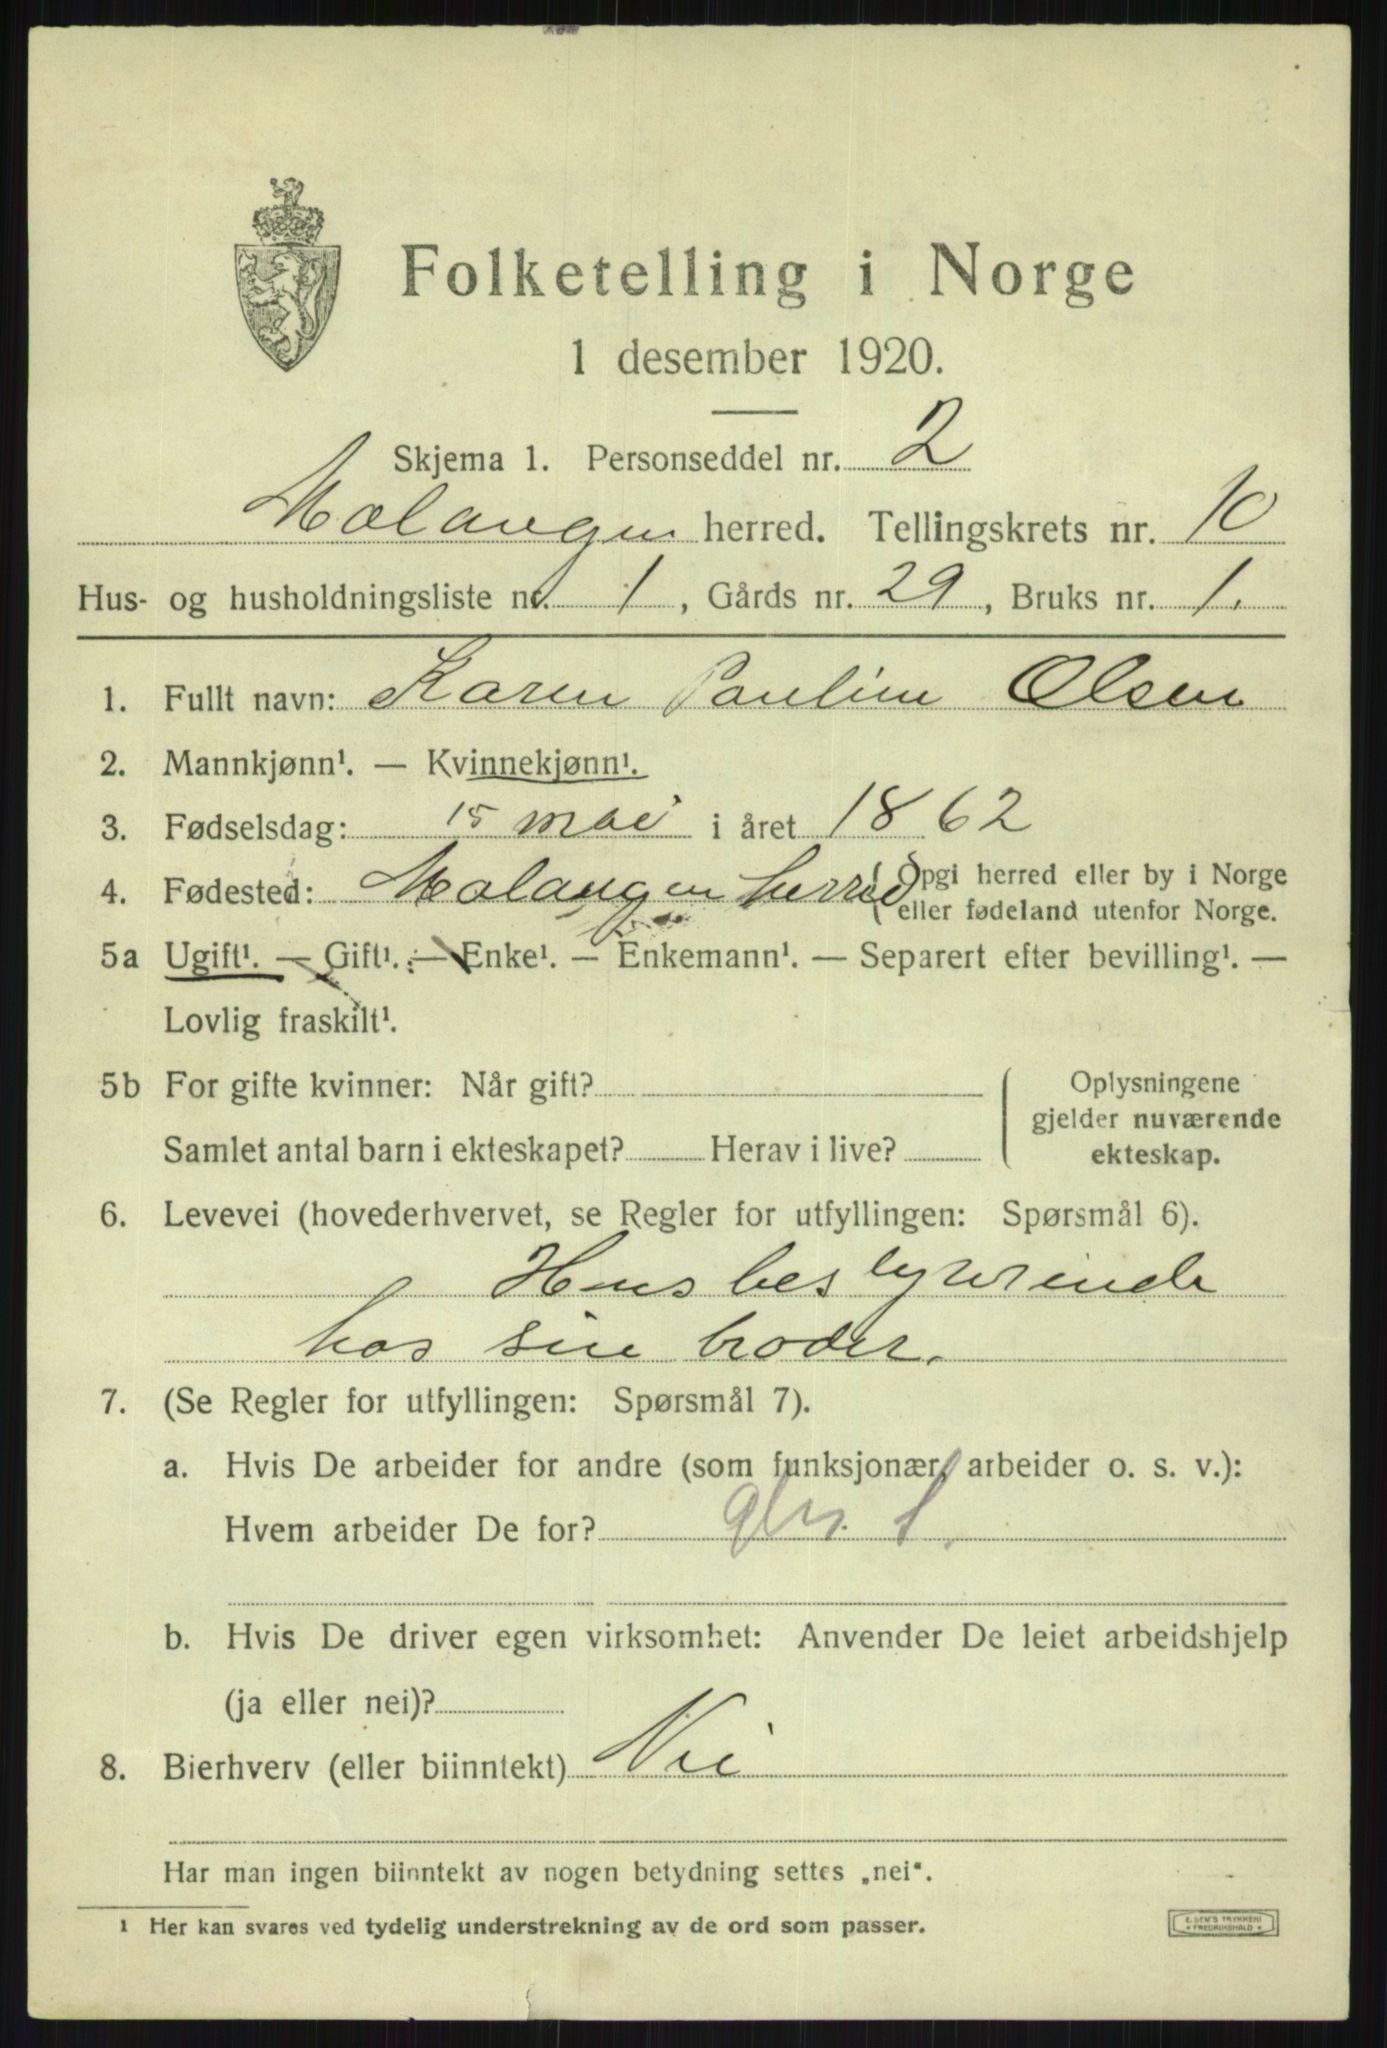 Folketelling i Norge
1 desember 1920.
Skjema 1. Personseddel nr. 2
Malangen herred. Tellingskrets nr. 10
Hus- og husholdningsliste nr. 1, Gårds nr. 29, Bruks nr. 1.
1. Fullt navn: Karen Pauline Olsen
2. Mannkjønn¹. — Kvinnekjønn¹.
3. Fødselsdag: 15 mai i året 1862
4. Fødested: Malangen herred (Opgi herred eller by i Norge
eller fødeland utenfor Norge.
5a Ugift¹. — Gift¹. — Enke¹. — Enkemann¹. — Separert efter bevilling¹. —
Lovlig fraskilt¹.
5b For gifte kvinner: Når gift?
Samlet antal barn i ekteskapet? Herav i live?
Oplysningene
gjelder nuværende
ekteskap.
6. Levevei (hovederhvervet, se Regler for utfyllingen: Spørsmål 6).
Husbestyrerinde
hos sin broder.
7. (Se Regler for utfyllingen: Spørsmål 7).
a. Hvis De arbeider for andre (som funksjonær, arbeider o. s. v.):
Hvem arbeider De for?
b. Hvis De driver egen virksomhet: Anvender De leiet arbeidshjelp
(ja eller nei)?
8. Bierhverv (eller biinntekt) Nei
Har man ingen biinntekt av nogen betydning settes „nei“.
¹ Her kan svares ved tydelig understrekning av de ord som passer.
E. SEM'S TRYKKERI
FREDRIKSHALD